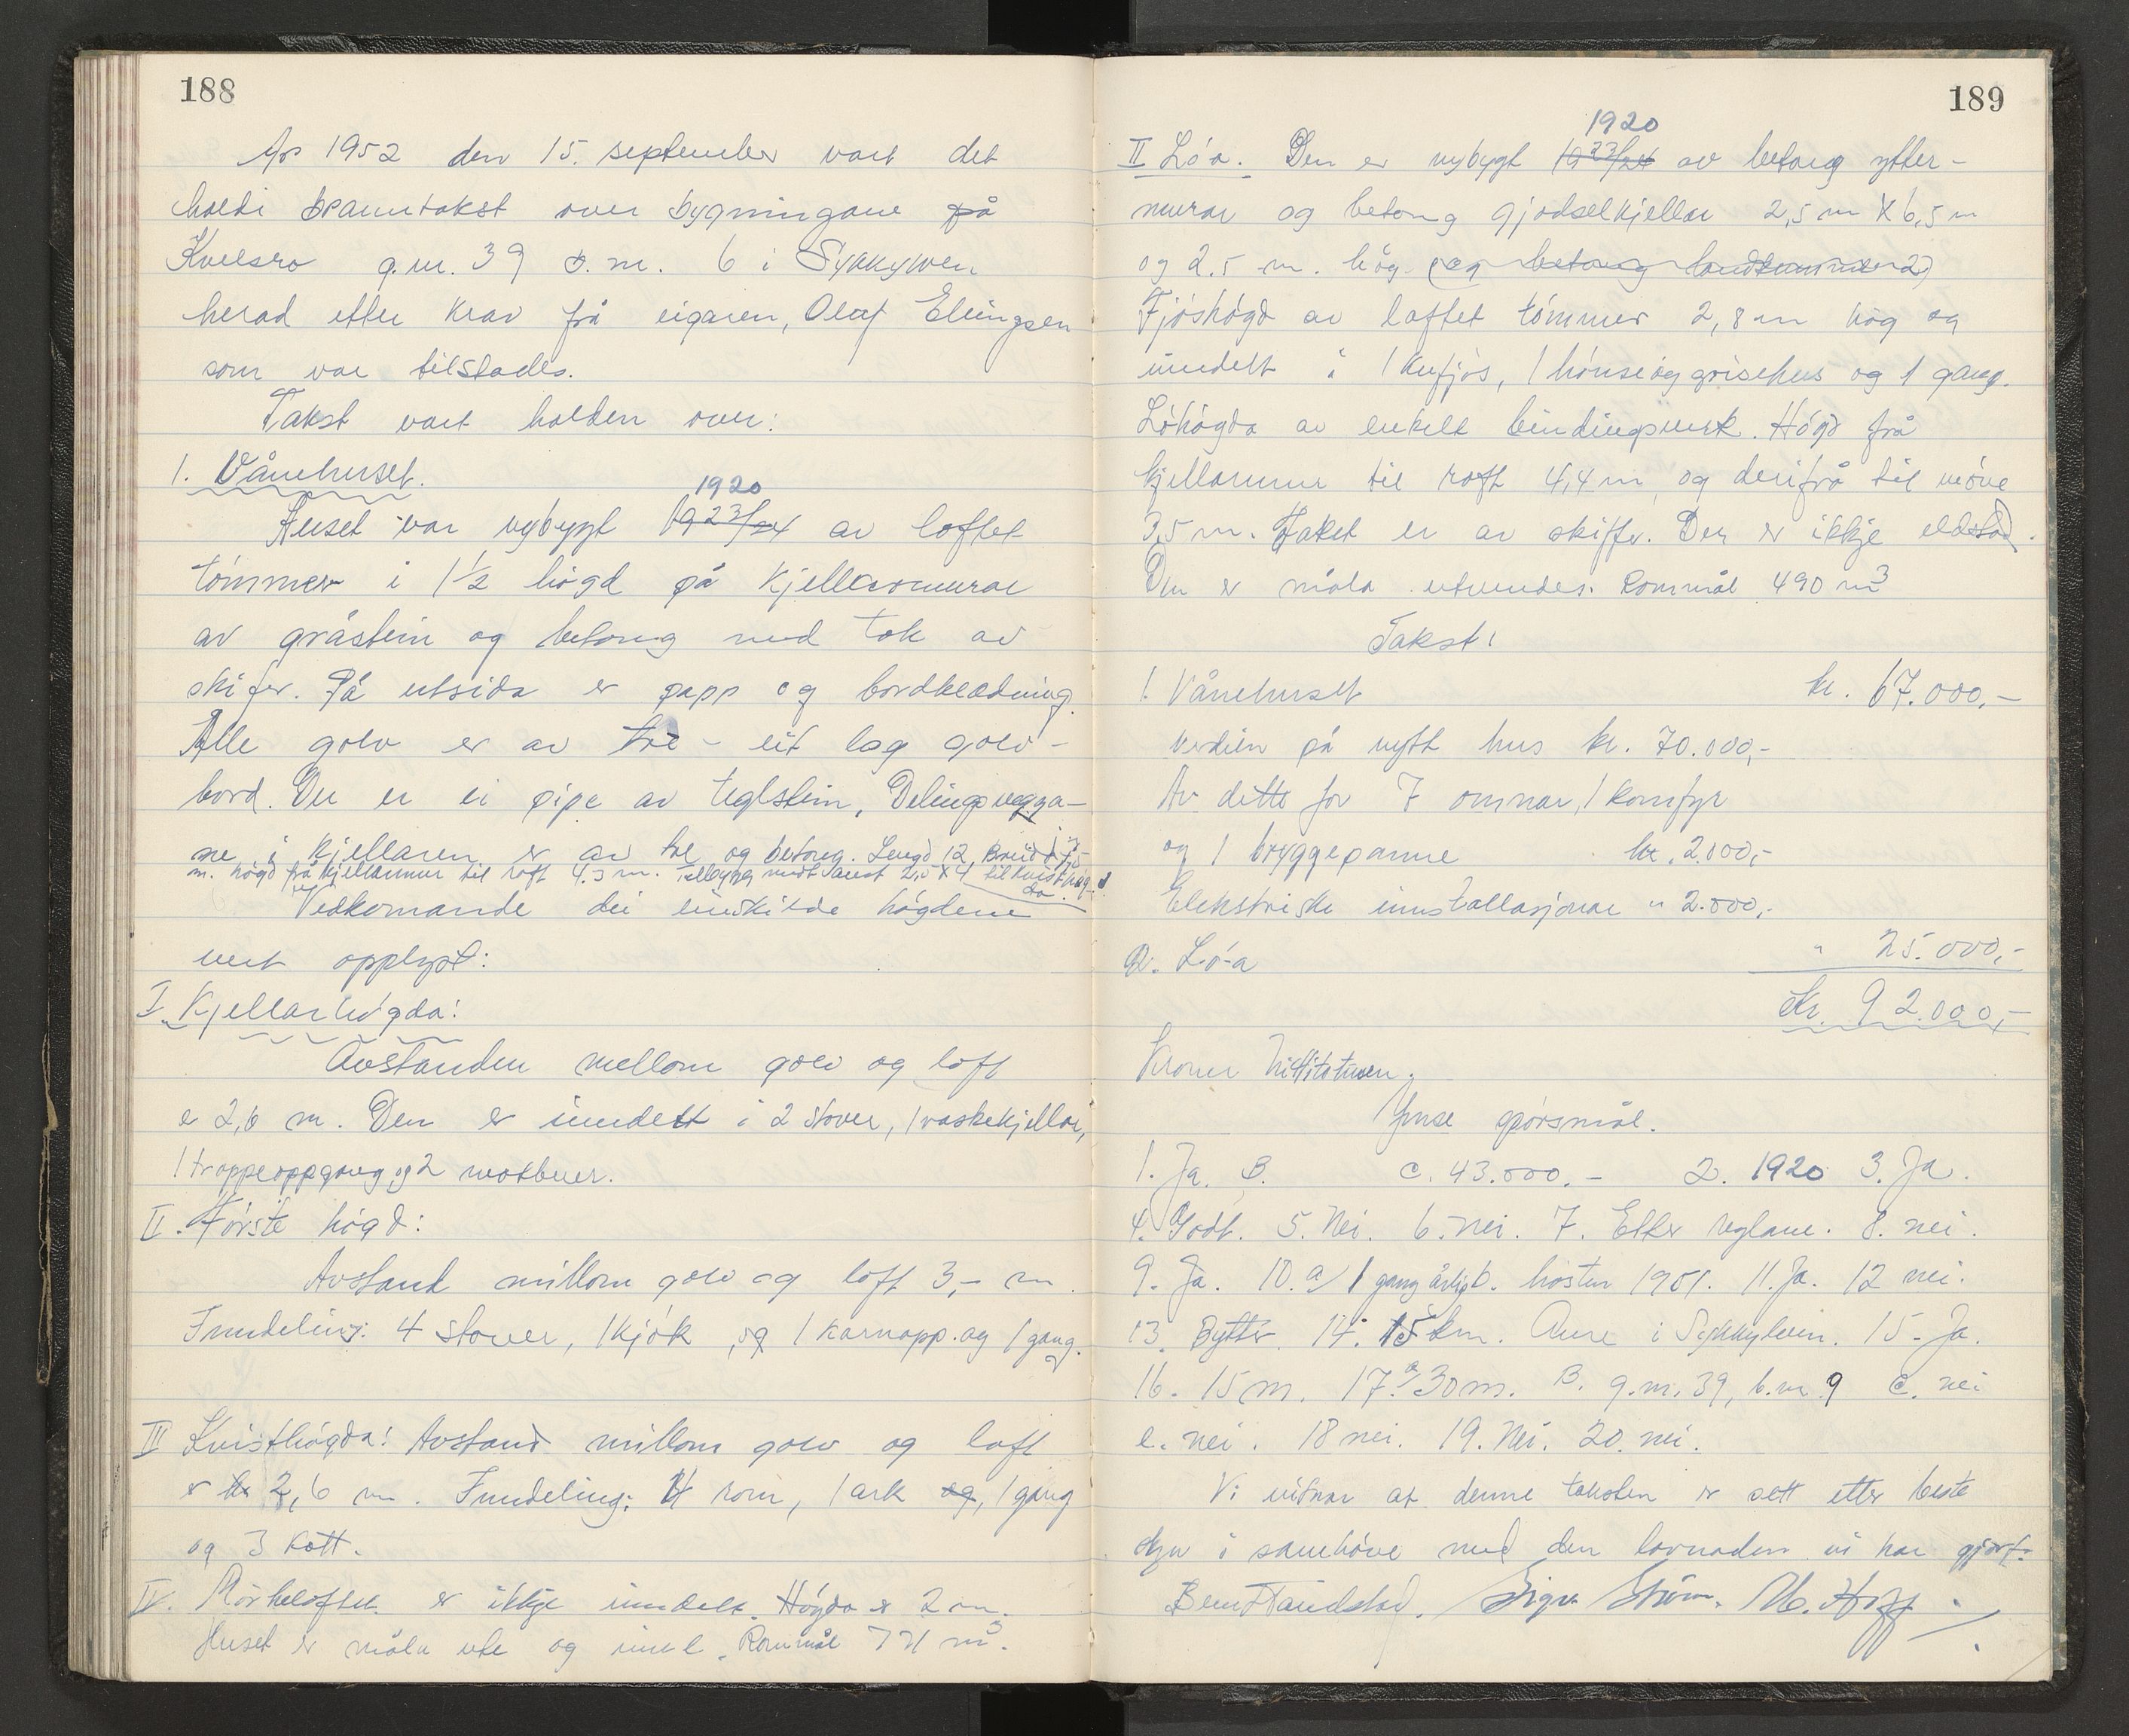 188
År 1952 den 15. september vart det
haldi branntakst over bygningane på
Kvelsro g.nr. 39 b.nr. 6 i Sykkylven
herad etter krav frå eigaren, Olaf Elvingsen
som var tilstades.
Takst vart halden over:
1. Vånehuset.
1920
Huset var nybygt 1923/24 av loftet
tømmer i 1½ høgd på kjellaromurar
av gråstein og betong med tak av
skifer. På utsida er papp og bordkledning.
Alle golv er av tre - eit lag golv-
bord. Der er ei pipe av teglstein, Delingsvegga-
ne i kjellaren er av tre og betong. Lengd 12, Breidd 7,5
m. høgd frå kjellarmur til røft 4.3 m. Tilbygg mot aust 2,0 x 4 til kvisthøg-
da.
Vedkomande dei einskilde høgdene
vert opplyst:
I Kjellarhøgda:
Avstanden mellom golv og loft
e 2,0 m. Den er inndelt i 2 stover, 1 vaskekjellar,
1 trappeoppgang og 2 matbuer.
II. Første høgd:
Avstand millom golv og loft 3,- m.
Inndeling: 4 stover, 1 kjøk, og 1 karnapp. og 1 gang.
III Kvisthøgda: Avstand millom golv og loft
er 2,6 m. Inndeling: 4 rom, 1 ark og, 1 gang
og 3 kott.
IV. Mørkeloftet er ikkje inndelt. Høgda er 2 m.
Huset er måla ute og inne. Rommål 771 m³.
189
1920
II Lø'a. Den er nybygt 1923/24 av betong ytter-
murar og betong gjødselkjellar 2,5 m x 6,5 m
og 2.5 m. høg. (og betong landkummer 2)
Fjøshøgd av loftet tømmer 2,8 m høg og
inndelt i 1 kufjøs, 1 hønse og grisehus og 1 gang.
Løhøgda av enkelt bindingsverk. Høgd frå
kjellarmur til røft 4,4 m, og derifrå til møne
3,5 m. Taket er av skifer. Der er ikkje eldstad.
Den er måla utvendes. Rommål 490 m³
Takst:
1. Vånehuset kr. 67.000,-
Verdien på nytt hus kr. 70.000,-
Av dette for 7 omnar, 1 komfyr
og 1 bryggepanne kr. 2.000,-
Elektriske innstallasjonar " 2.000,-
2. Lø-a " 25.000,-
Kr. 92.000,-
Kroner Nittitotusen.
Ymse spørsmål.
1. Ja. B. C. 43.000.- 2. 1920 3. Ja.
4. Godt. 5. Nei. 6. nei. 7. Etter reglane. 8. nei.
9. Ja. 10. a/ 1 gang årlig b. hosten 1951. 11. Ja. 12 nei.
13. Bytter. 14. 15 km. Aure i Sykkylven. 15. Ja.
16. 15 m. 17. a/ 30 m. B. g.nr. 39, b.nr. 9 C. nei
e. nei. 18 nei. 19. Nei. 20. nei.
Vi vitnar at denne taksten er sett etter beste
skyn i samhøve med den lovnaden vi har gjort.
Bernt Tandstad. Sigv. Strøm. M. Hoff